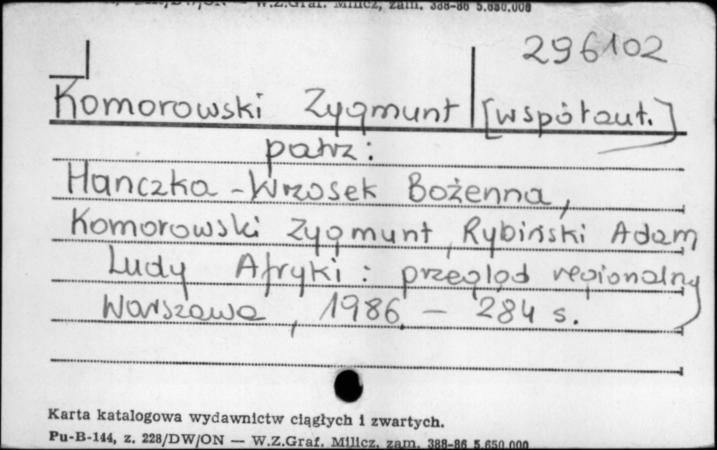 W.Z.Graf. Milicz, zam. 388-86 5.650.000
296102
Komorowski Zygmunt [współaut.]
patrz:
Hanczka-Wrzosek Bożenna,
Komorowski Zygmunt, Rybiński Adam
Ludy Afryki : przegląd regionalny
Warszawa, 1986. - 284 s.
Karta katalogowa wydawnictw ciągłych i zwartych.
Pu-B-144, z. 228/DW/ON — W.Z.Graf. Milicz, zam. 388-86 5.650.000